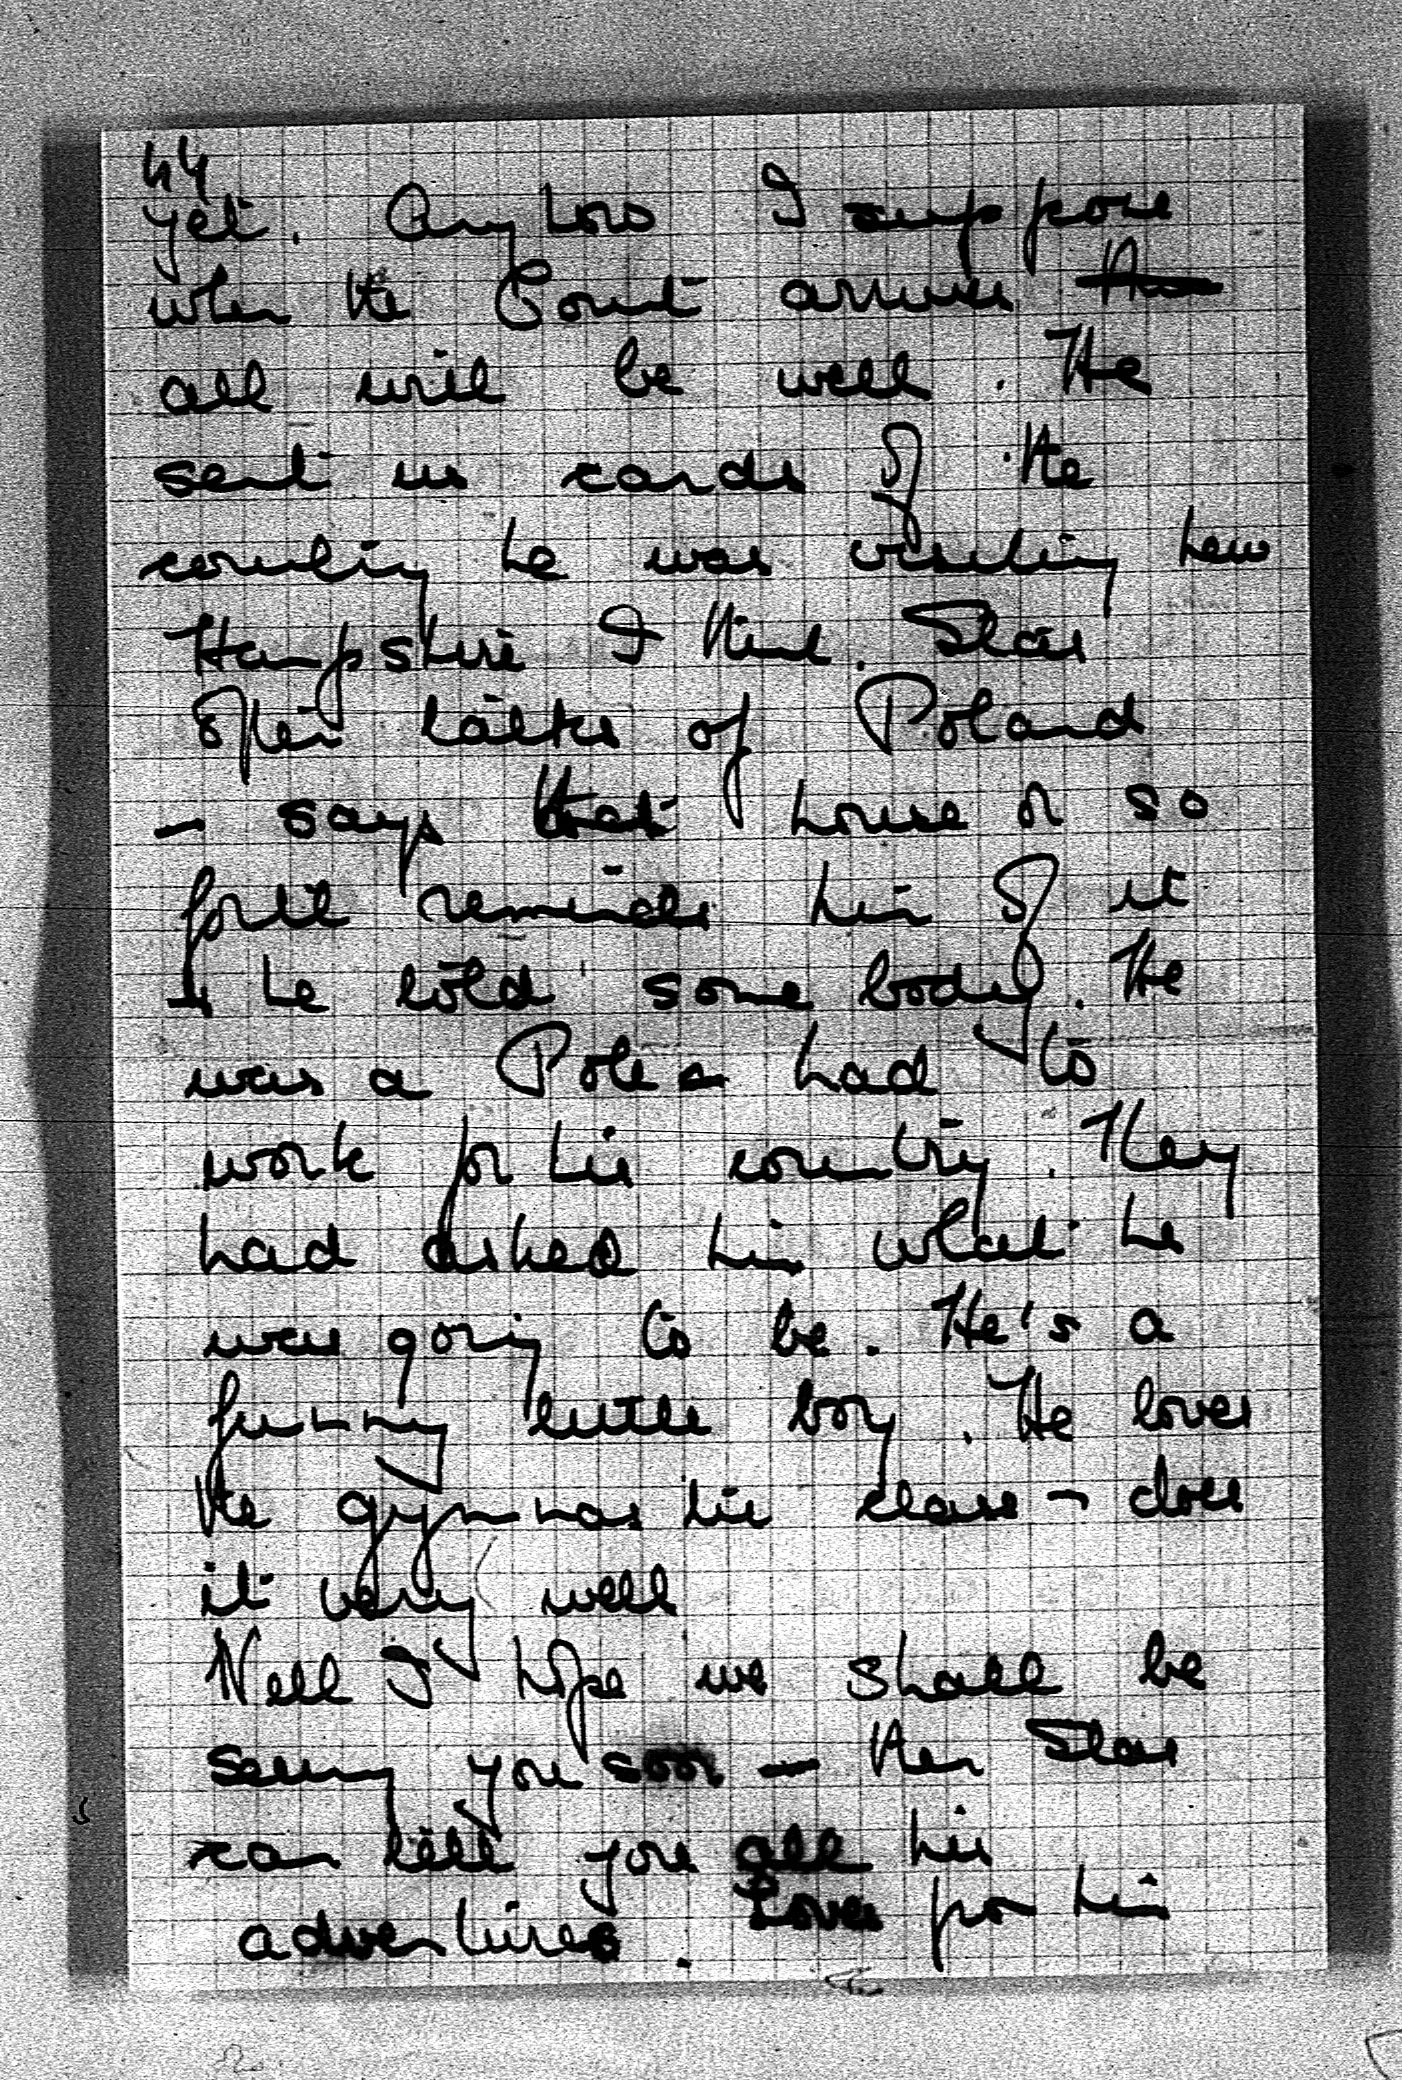 44
yet. Anyhow I suppose
when the Count arrives
all will be well. He
sent us cards of the
country he was visiting New
Hampshire I think. Stas
often talks of Poland
- says that house or so
forth reminds him of it
& he told somebody. He
was a Pole & had to
work for his country. They
had asked him what he
was going to be. He's a
funny little boy. He loves
the gymnastic class - does
it very well
Well I hope we shall be
seeing you soon - then Stas
can tell you all his
adventures. Love from him